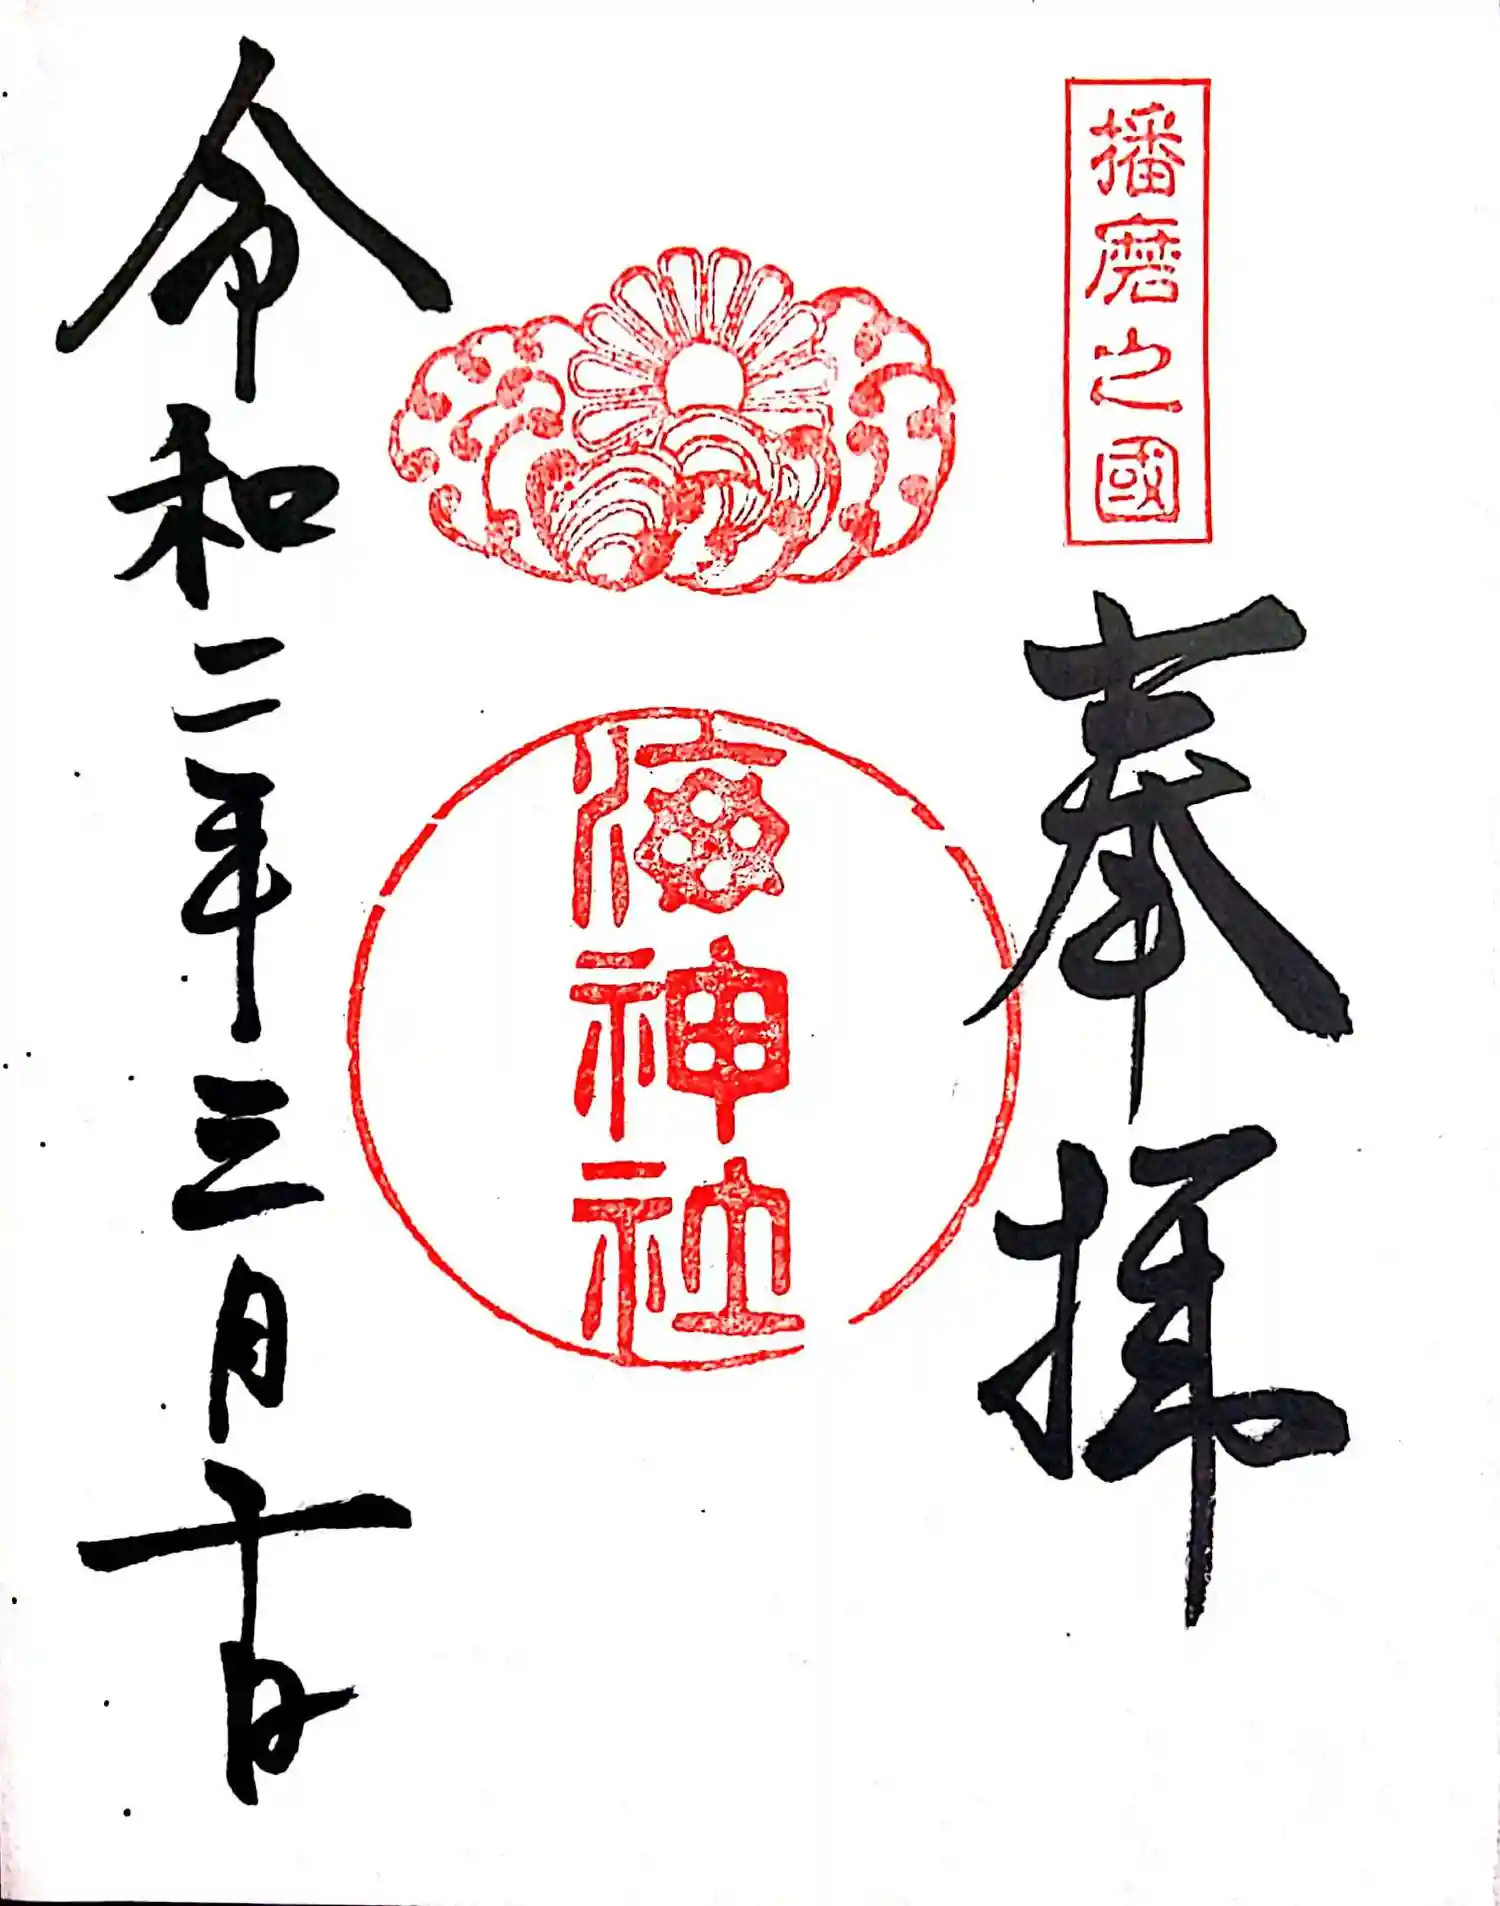 播磨之國
奉拜
海神社
令和二年三月十日